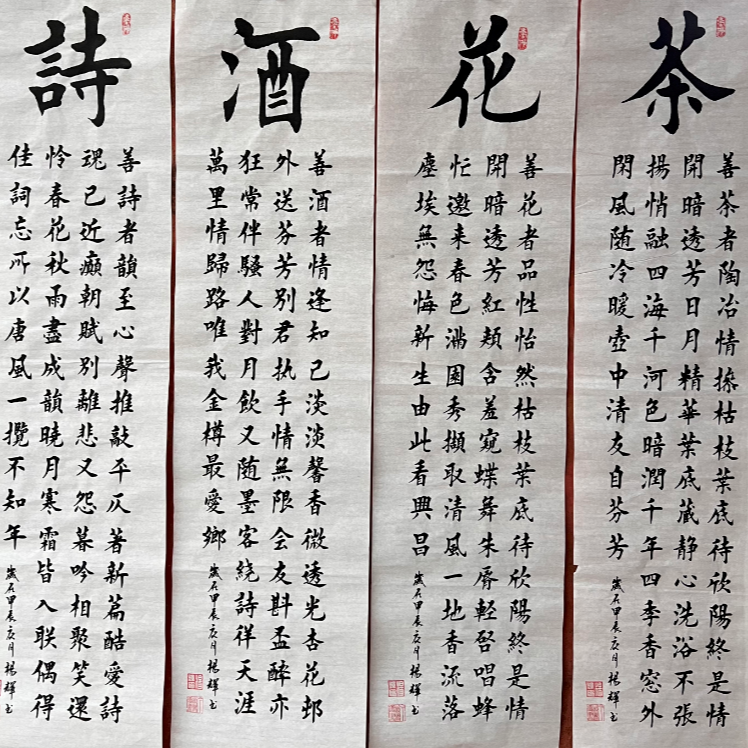 茶
善茶者陶冶情操枯枝葉底待欣陽終是情
開暗透芳日月精華葉底藏静心洗浴不張
揚悄融四海千河色暗潤千年四季香窓外
閑風随冷暖壺中清友自芬芳
歲在甲辰辰月楊輝书
花
善花者品性怡然枯枝葉底待欣陽終是情
開暗透芳紅頬含羞窺蝶舞朱唇軽啓唱蜂
忙邀来春色满園秀擷取清風一地香流落
塵埃無怨悔新生由此看興昌
歲在甲辰辰月楊輝书
酒
善酒者情逢知己淡淡馨香微透光杏花邨
外送芬芳别君执手情無限会友斟盃醉亦
狂常伴騷人對月飲又随墨客繞詩徉天涯
萬里情歸路唯我金樽最愛鄉
歲在甲辰辰月楊輝书
詩
善詩者韻至心聲推敲平仄著新篇酷愛詩
魂已近癲朝賦别離悲又怨暮吟相聚笑還
怜春花秋雨盡成韻曉月寒霜皆入联偶得
佳詞忘所以唐風一攬不知年
歲在甲辰辰月楊輝书